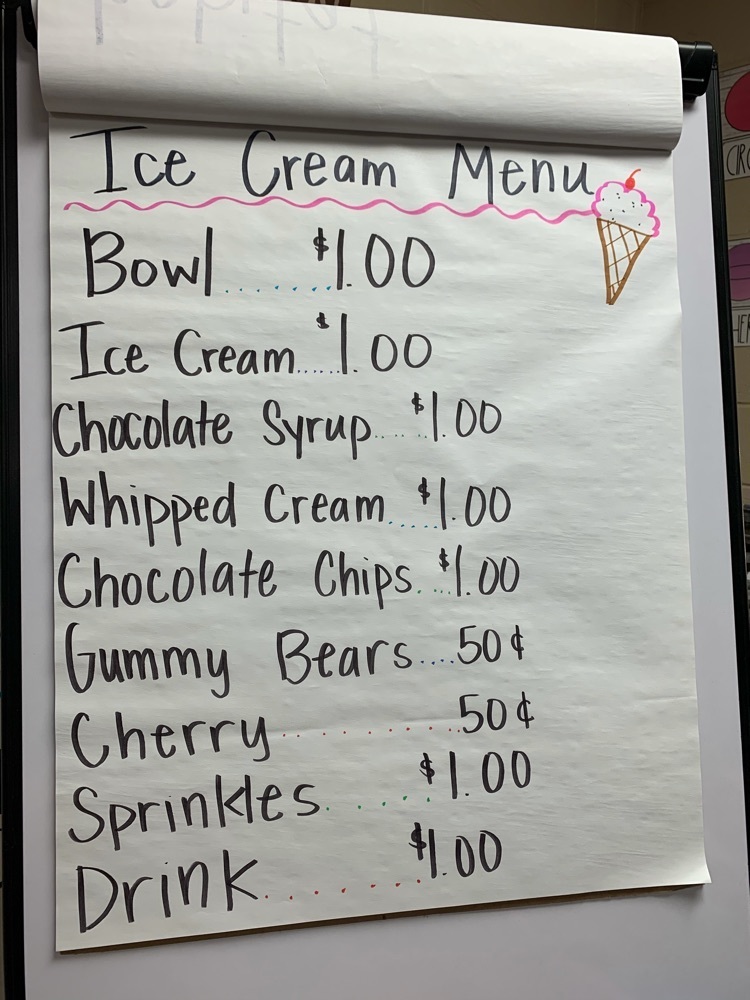 Ice Cream Menu
Bowl......$1.00
Ice Cream.....$1.00
Chocolate Syrup.....$1.00
Whipped Cream.....$1.00
Chocolate Chips....$1.00
Gummy Bears....50¢
Cherry..........50¢
Sprinkles.....$1.00
Drink.......$1.00